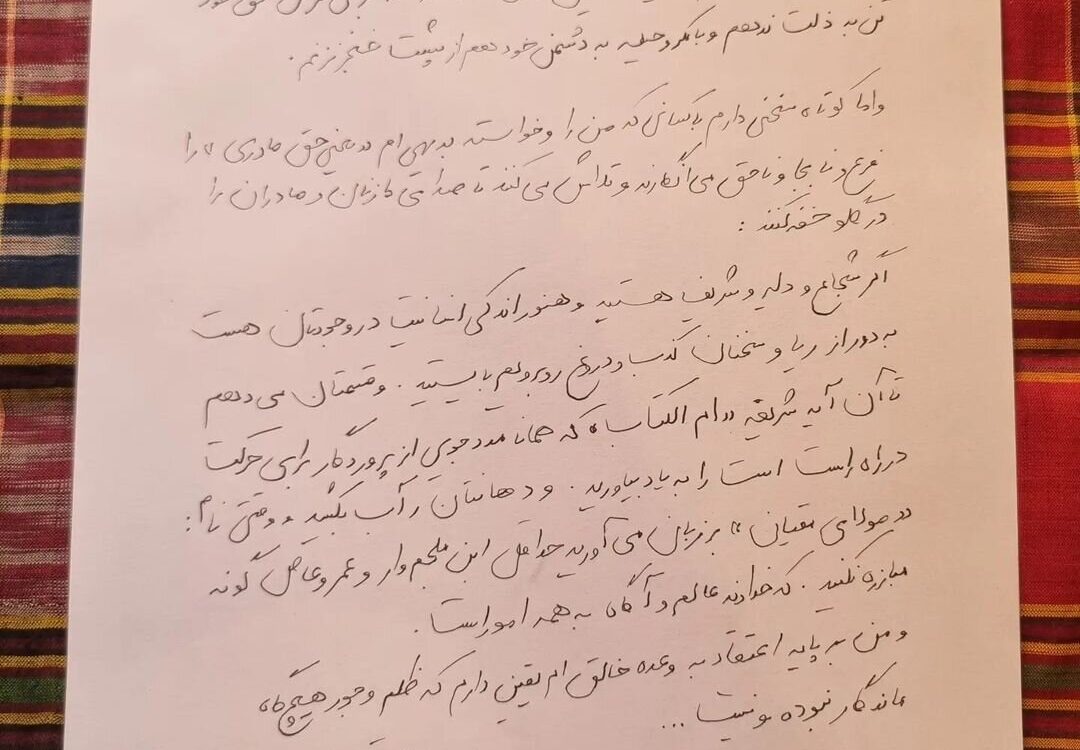 تن به ذلت ندهم و با مکر و حیله به دشمن خود هم از پشت خنجر نزنم.
و اما کوتاه سخنی دارم با کسانی که من را و خواسته بدیهی ام «یعنی حق مادری» را
نابجا و ناحق می انگارند و تلاش می کنند تا صدای زنان و مادران را
در گلو خفه کنند:
اگر شجاع و دلیر و شریف هستید و هنوز اندکی انسانیت در وجودتان هست
به دور از ریا و سخنان کذب و دروغ روبرویم بایستید. و قسمتان می دهم
تا آن آیه شریفه «ام الکتاب» که همانا مددجویی از پروردگار برای حرکت
در راه راست است را به یاد بیاورید. و دهانتان را آب بکشید و وقتی نام:
«مولای متقیان» بر زبان می آورید حداقل ابن ملجم وار و عمروعاص گونه
مبارزه نکنید. که خداوند عالم و آگاه به همه امور است.
و من بر پایه اعتقاد به وعده خالق ام یقین دارم که ظلم و جور هیچگاه
ماندگار نبوده و نیست...